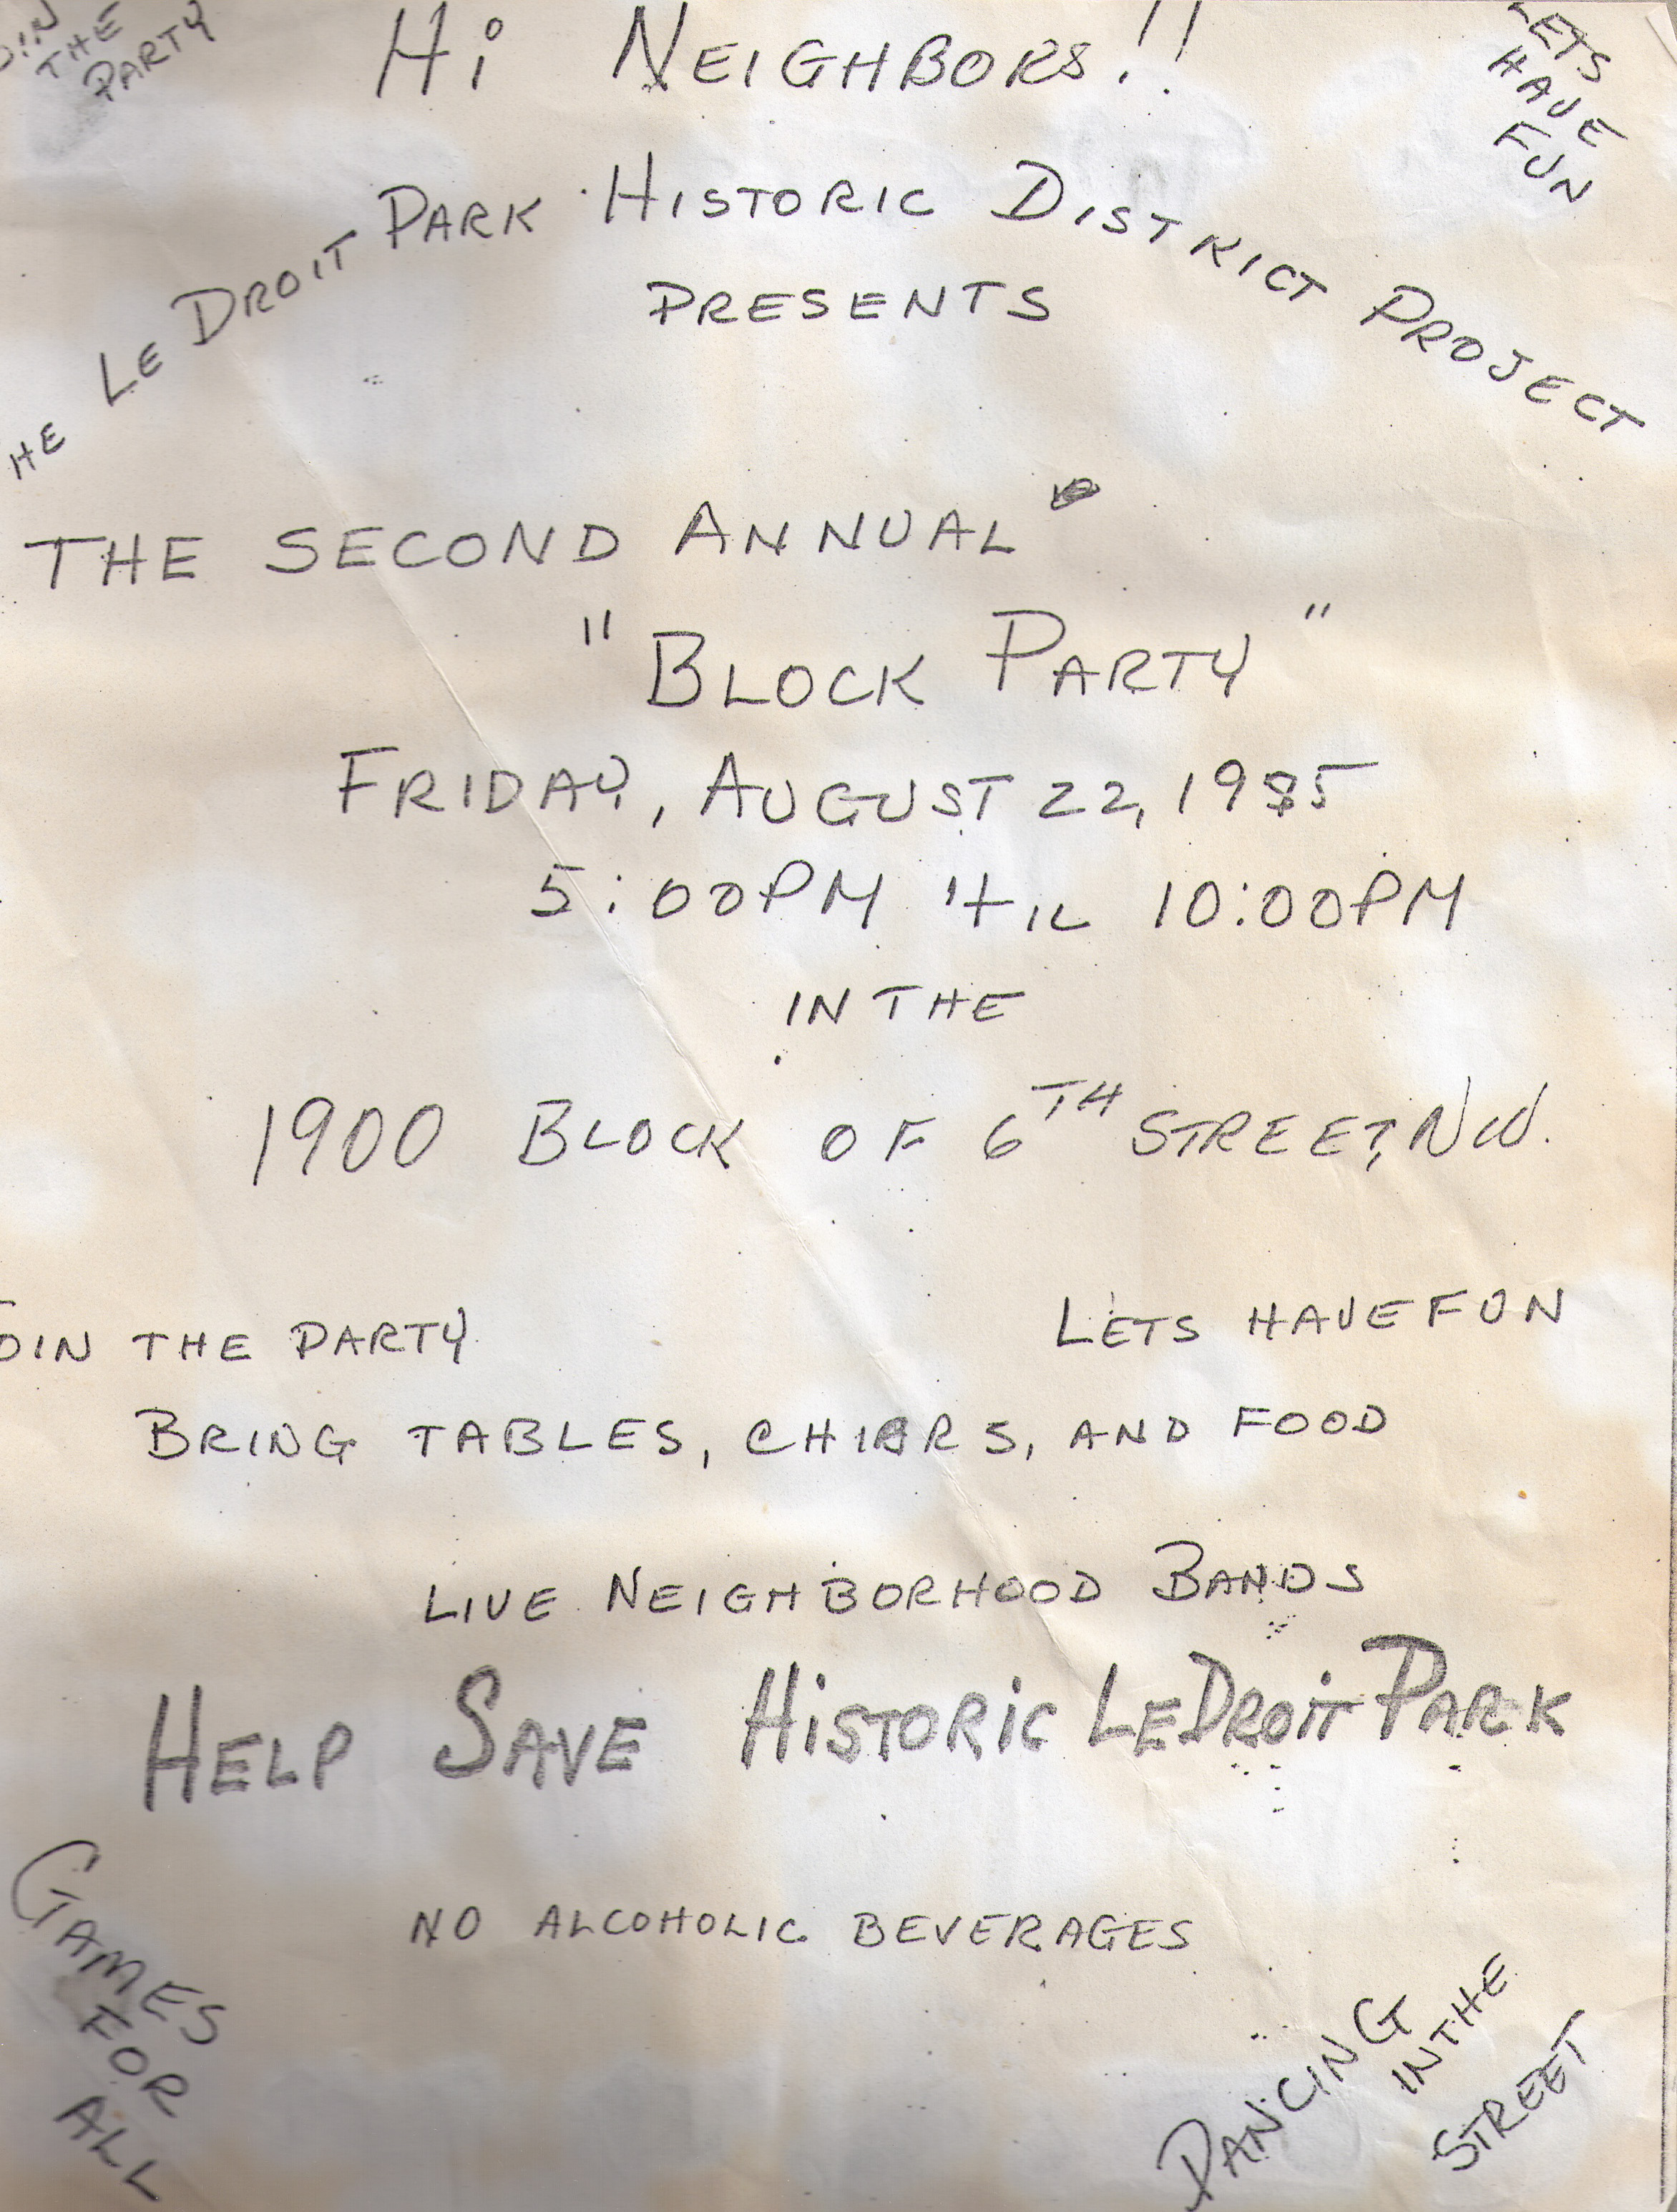 OIN
THE
PARTY
HI NEIGHBORS!!
LETS
HAVE
FUN
HE LE DROIT PARK HISTORIC DISTRICT PROJECT
PRESENTS
THE SECOND ANNUAL
"BLOCK PARTY"
FRIDAY, AUGUST 22, 1975
5:00PM 'TIL 10:00PM
IN THE
1900 BLOCK OF 6TH STREET, NW.
JOIN THE PARTY
LETS HAVE FUN
BRING TABLES, CHIARS, AND FOOD
LIVE NEIGHBORHOOD BANDS
HELP SAVE HISTORIC LEDROIT PARK
GAMES
FOR
ALL
NO ALCOHOLIC BEVERAGES
DANCING
IN THE
STREET